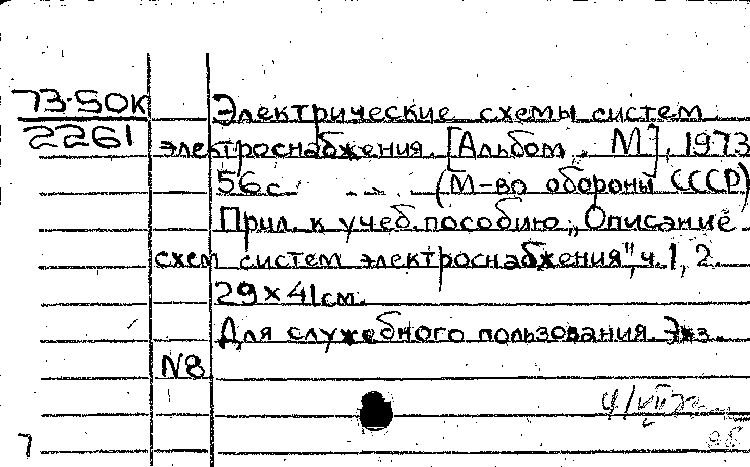 73-50К
2261
Электрические схемы систем
электроснабжения. [Альбом. М], 1973
56с. (М-во обороны СССР)
Прил. к учеб. пособию: „Описание
схем систем электроснабжения", ч. 1, 2.
29×41см.
Для служебного пользования. Экз.
N8
7